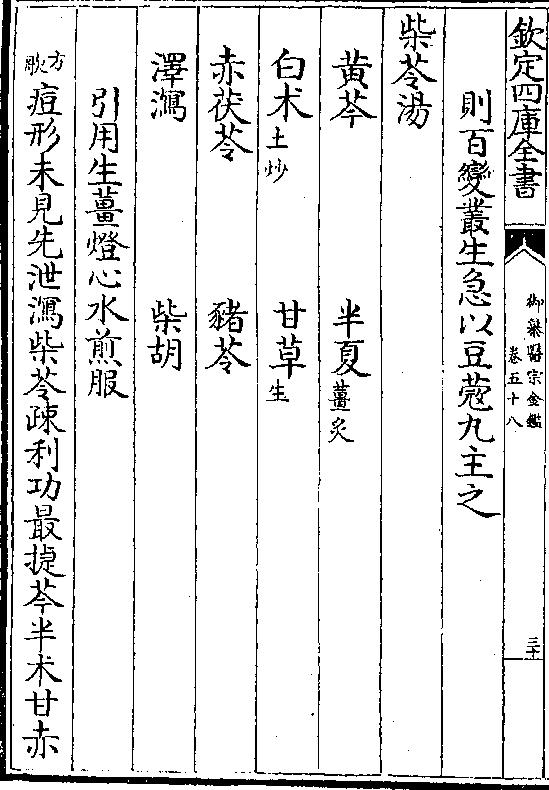 欽定四庫全書
御纂醫宗金鑑
卷五十八
三十
則百變叢生急以豆蔻丸主之
柴苓湯
黃芩 半夏薑炙
白朮土炒 甘草生
赤茯苓 豬苓
澤瀉 柴胡
引用生薑燈心水煎服
方歌痘形未見先泄瀉柴苓疎利功最捷芩半朮甘赤